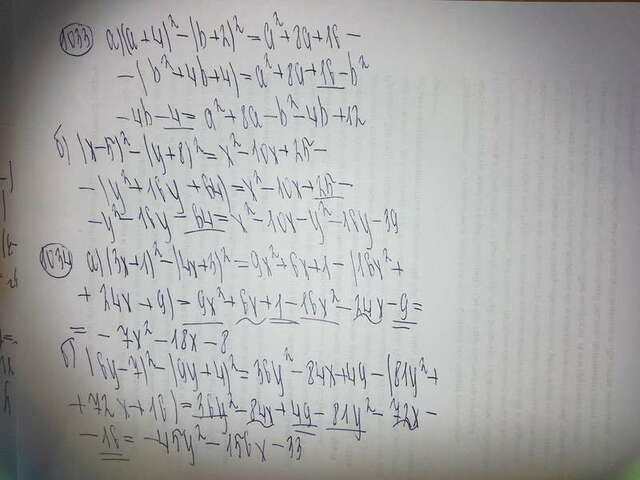 1033 а)(a+4)²-(b+2)²=a²+8a+16-
-(b²+4b+4)=a²+8a+16-b²
-4b-4=a²+8a-b²-4b+12
б)(x-5)²-(y+8)²=x²-10x+25-
-(y²+16y+64)=x²-10x+25-
-y²-16y-64=x²-10x-y²-16y-39
1034 а)(3x+1)²-(4x+3)²=9x²+6x+1-(16x²+
+24x+9)=9x²+6x+1-16x²-24x-9=
=-7x²-18x-8
б)(6y-7)²-(9y+4)²=36y²-84x+49-(81y²+
+72x+16)=36y²-84x+49-81y²-72x-
-16=-45y²-156x-33